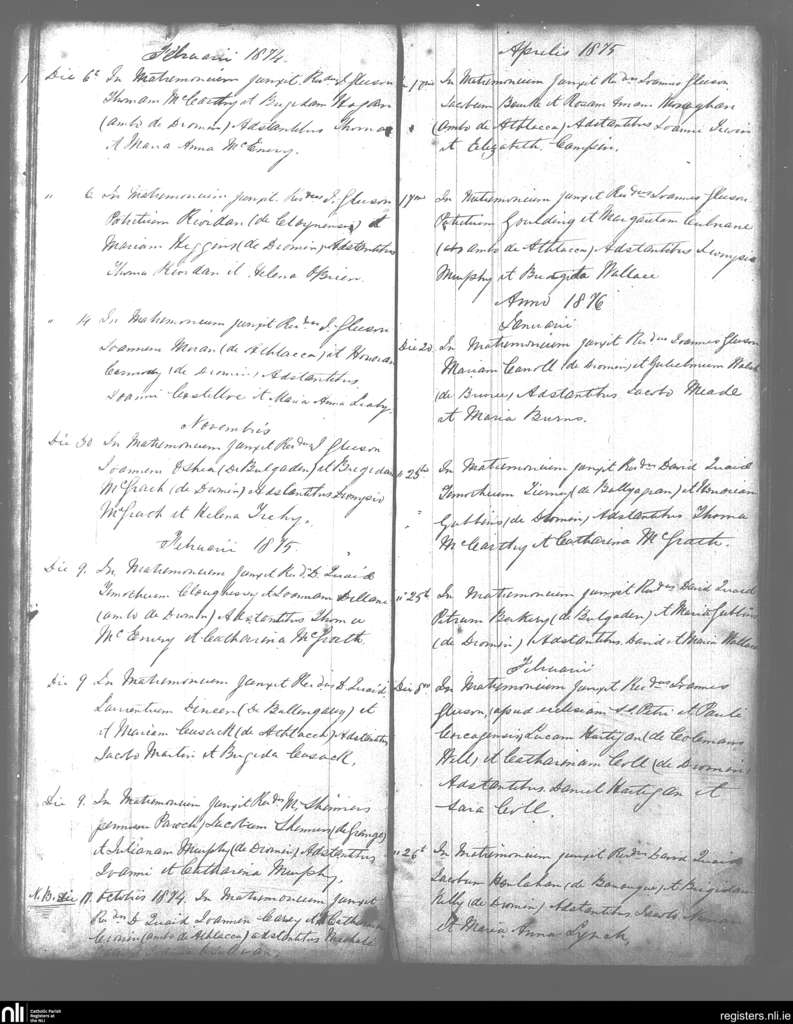 Februarii 1874.
Die 6ª In Matrimonium junxit Revdus J Gleeson
Thomam McCarthy et Brigidam Hogan
(ambo de Dromin) Adstantibus Thoma
et Maria Anna McEnery.
" 6 In Matrimonium junxit Revdus J. Gleeson
Patritium Riordan (de Cloynensis) et
Mariam Higgins (de Dromin) Adstantibus
Thoma Riordan et Helena OBrien.
" 14 In Matrimonium junxit Revdus J. Gleeson
Joannem Moran (de Athlacca) et Honoram
(de Dromin) Adstantibus
Joanni Costelloe et Maria Anna Leahy.
Novembris
Die 30 In Matrimonium junxit Revdus J Gleeson
Joannem OShea (De Bulgaden) et Brigidam
McGrath (de Dromin) Adstantibus Dionysio
McGrath et Helena
Februarii 1875.
Die 9. In Matrimonium junxit Revd. D. Quaid
Timotheum et Joannam
(ambo de Dromin) Adstantibus Thoma
McEnery et Catharina McGrath
Die 9 In Matrimonium junxit Revdus D. Quaid
Laurentium Dineen (de Ballingaddy) et
et Mariam Cusack (de Athlacca) Adstantibus
Jacobo Martin et Brigida Cusack.
Die 9. In Matrimonium junxit Revdus M.
Paroch Jacobum (de Grange)
et Julianam Murphy (de Dromin) Adstantibus
Joanni et Catharina Murphy.
N.B. Die 11. Octobris 1874. In Matrimonium junxit
Revdus D Quaid Joannem Casey et Catharinam
Cronin (ambo de Athlacca) adstantibus
Aprilis 1875
17ma In Matrimonium junxit Revdus Joannes Gleeson
Jacobum Bourke et Rosam Annam Monaghan
(ambo de Athlacca) Adstantibus Joanni
et Elizabeth
17ma In Matrimonium junxit Revdus Joannes Gleeson
Patritium Goulding et Margaretam
(ambo de Athlacca) Adstantibus Dionysio
Murphy et Brigitta Wallace
Anno 1876
Januarii
Die 20 In Matrimonium junxit Revdus Joannes Gleeson
Mariam Carroll (de Dromin) et Gulielmum Walsh
(de Bruree) Adstantibus Jacobo Meade
et Maria Burns.
" 25ta In Matrimonium junxit Revdus David Quaid
Timotheum Tierney (de Ballyagran) et Honoram
Gubbins (de Dromin) Adstantibus Thoma
McCarthy et Catharina McGrath.
" 25ta In Matrimonium junxit Revdus David Quaid
Petrum (de Bulgaden) et Maria Gubbins
(de Dromin) Adstantibus David et Maria Wallace
Februarii
Die 8va In Matrimonium junxit Revdus Joannes
Gleeson, apud ecclesiam S.S. Petri et Pauli
Corcagiensis, Lucam Hartigan (de Colemans
Well) et Catharinam Coll (de Dromin)
Adstantibus Daniel Hartigan et
Sara Coll.
" 26ta In Matrimonium junxit Revdus David Quaid
Jacobum (de Banogue) et Brigidam
Kelly (de Dromin) Adstantibus Jacobo
et Maria Anna Lynch,
nli Catholic Parish
Registers at
the NLI
registers.nli.ie